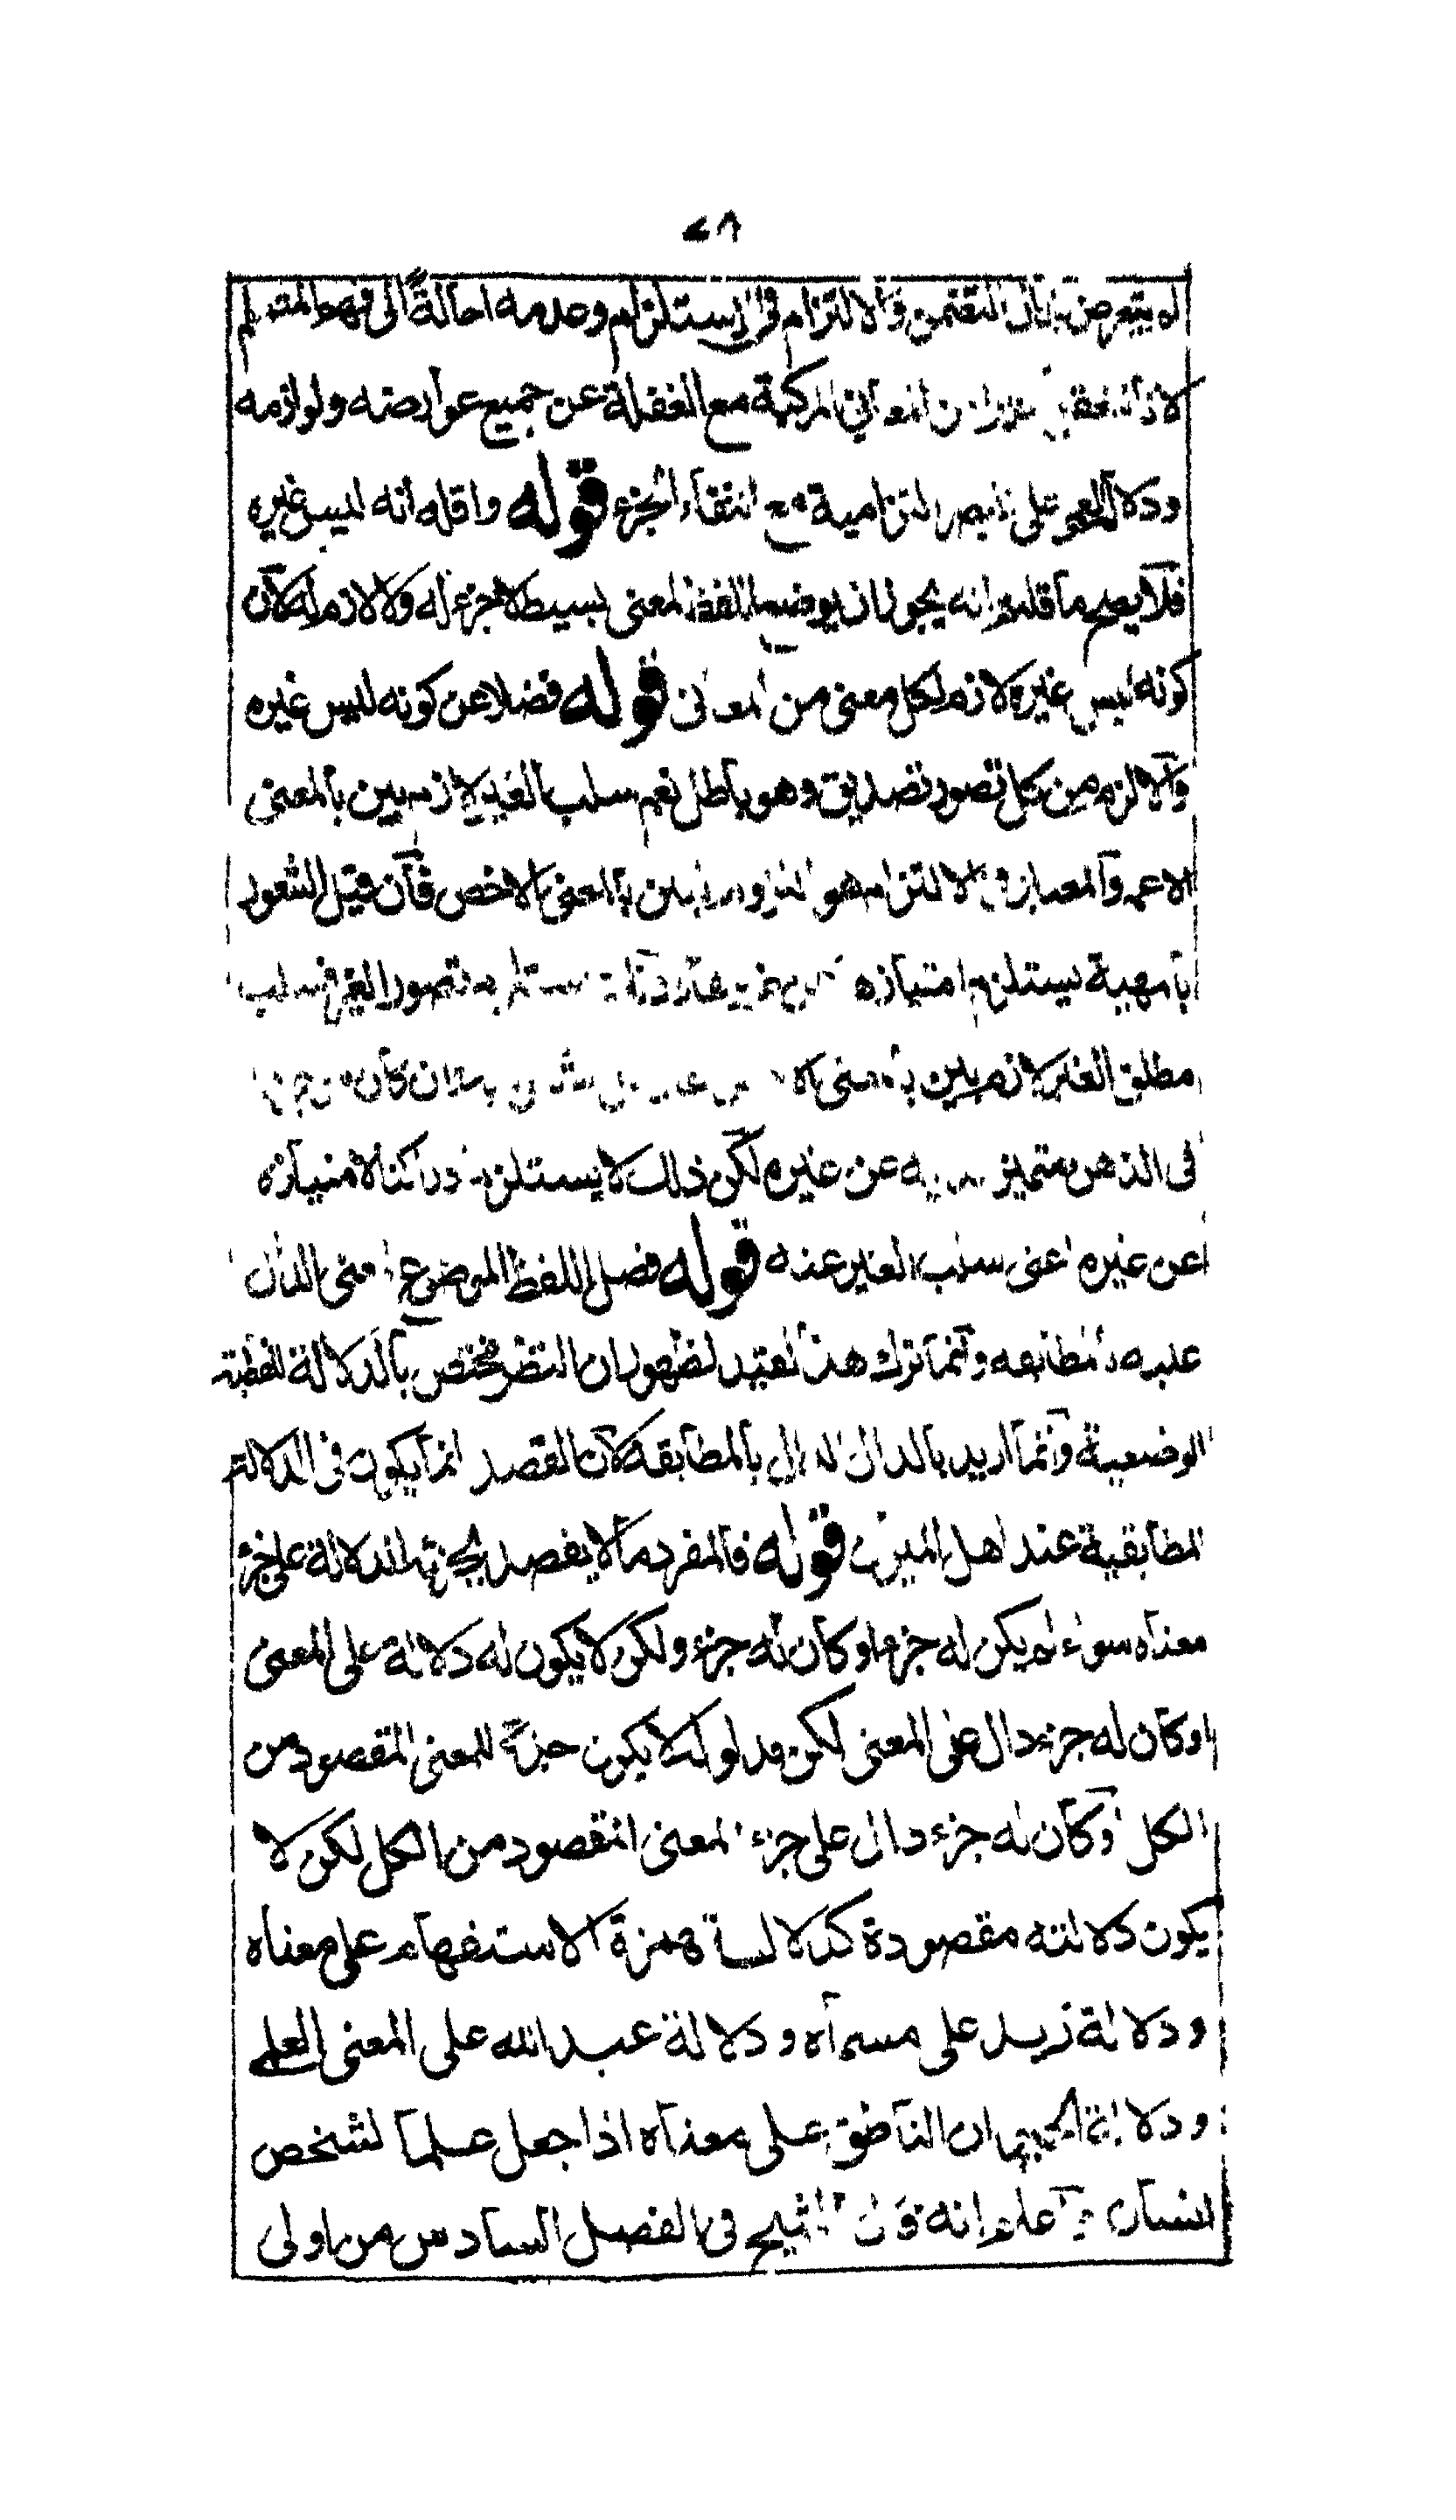 ٢٨
لم يتعرض لبيان التضمن والالتزام في الاستلزام وعدمه احالةً الى فهم المتعلم
المعاني المركبة مع الغفلة عن جميع عوارضه ولوازمه
ودلالة العمى على البصر التزامية مع انتفاء الجزء قوله واقله انه ليس غيره
فلا يصح ما قلتم انه يجوز ان يوضع اللفظ لمعنى بسيط لا جزء له ولا لازم له لان
كونه ليس غيره لازم لكل معنى من المعانى قوله فضلا عن كونه ليس غيره
والا لزم من كل تصور تصديق وهو باطل نعم سلب الغير لازم بين بالمعنى
الاعم والمعتبر في الالتزام هو اللزوم البين بالمعنى الاخص فان قيل الشعور
بالمهية يستلزم امتيازه تصور الغير فسلب
مطلق الغير لازم بين بالمعنى وان كان
فى الذهن متميز عن غيره لكن ذلك لا يستلزم ادراكنا لامتيازه
عن غيره اعنى سلب الغير عنه قوله فصل اللفظ الموضوع لمعنى الدال
عليه بالمطابقه وانما ترك هذا القيد لظهور ان النظر مختص بالدلالة اللفظية
الوضعية وانما اريد بالدال الدال بالمطابقة لان القصد انما يكون فى الدلالة
المطابقية عند اهل الميزان قوله فالمفرد ما لا يقصد بجزئه الدلالة على جزء
معناه سواء لم يكن له جزء او كان له جزء ولكن لا يكون له دلالة على المعنى
او كان له جزء دال على المعنى لكن مدلوله لا يكون جزءً للمعنى المقصود من
الكل او كان له جزء دال على جزء المعنى المقصود من الكل لكن لا
يكون دلالته مقصودة كدلالة همزة الاستفهام على معناه
ودلالة زيد على مسماه ودلالة عبد الله على المعنى العلمى
ودلالة الحيوان الناطق على معناه اذا جعل علما لشخص
انسان اعلم انه قال الشيخ فى الفصل السادس من اولى